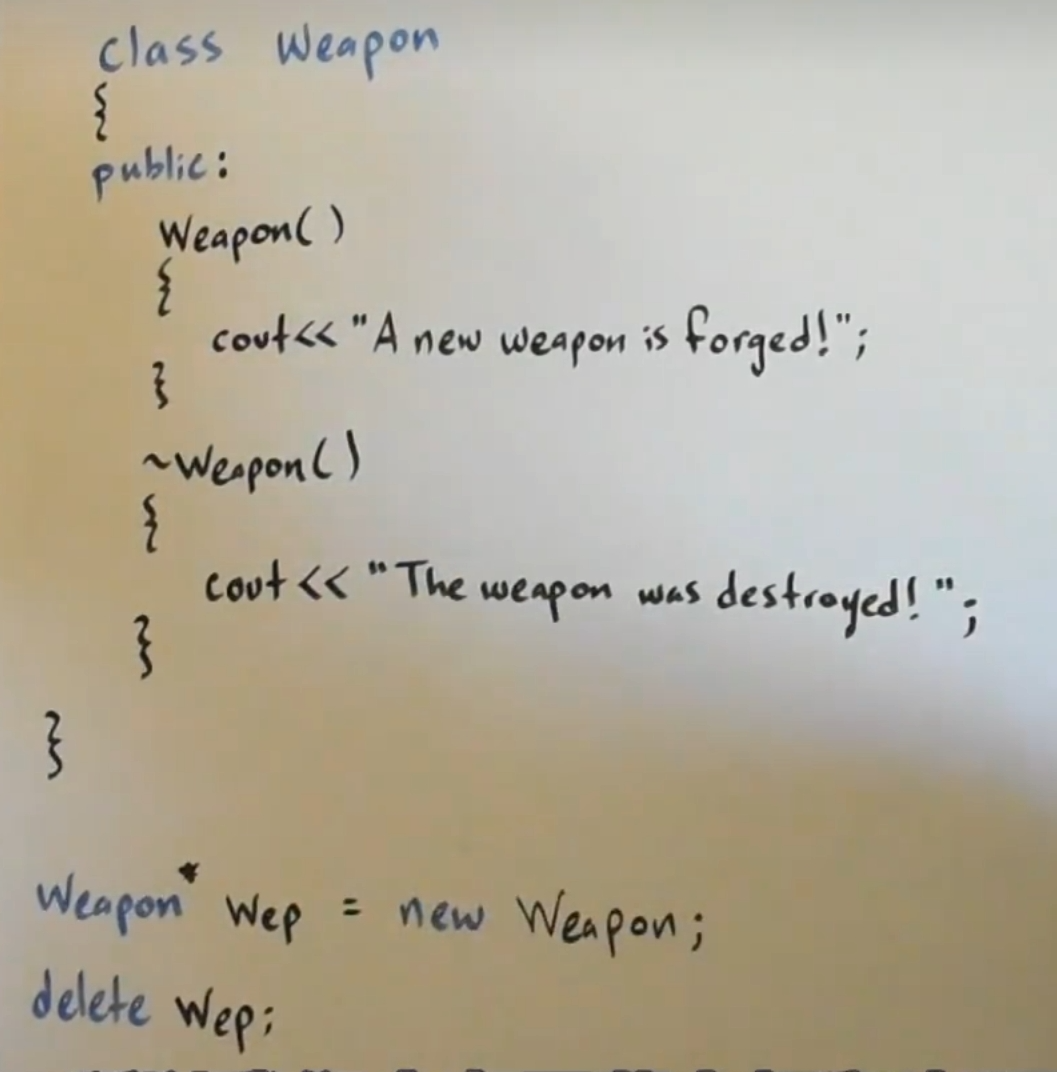 class Weapon
{
public:
Weapon()
{
cout<< "A new weapon is forged!";
}
~Weapon()
{
cout << "The weapon was destroyed!";
}
}
Weapon* Wep = new Weapon;
delete Wep;